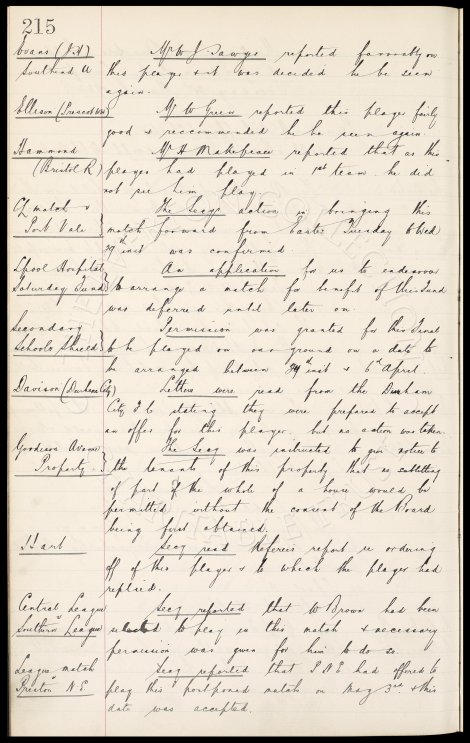 215
Evans (J.A) Mr W J Sawyer reported favorably on
Southend U this player & it was decided he be seen
again.
Ellison (Prescot ) Mr W Green reported this player fairly
good & reccommended he be seen again.
Hammond Mr A Makepeace reported that as this
(Bristol R) player had played in 1st team he did
not see him play.
CL match v The Secy's action in bringing this
Port Vale match forward from Easter Tuesday to Wed
inst was confirmed.
Lpool Hospital An application for us to endeavor
Saturday Fund to arrange a match for benefit of this Fund
was deferred until later on.
Secondary Permission was granted for this Final
Schools Shield to be played on our ground on a date to
be arranged between 29th inst & 6th April.
Davison (Durham City) Letters were read from the Durham
City F.C stating they were prepared to accept
an offer for this player, but no action was taken.
Goodison Avenue The Secy was instructed to give notice to
Property. the tenants of this property that no subletting
of part of the whole of a house would be
permitted without the consent of the Board
being first obtained.
Hart Secy read Referees report re ordering
off of this player & to which the player had
replied.
Central League Secy reported that W Brown had been
v Southern League selected to play in this match & necessary
permission was given for him to do so.
League match Secy reported that P.N.E had offered to
v Preston N.E. play this postponed match on May 3rd & this
date was accepted.